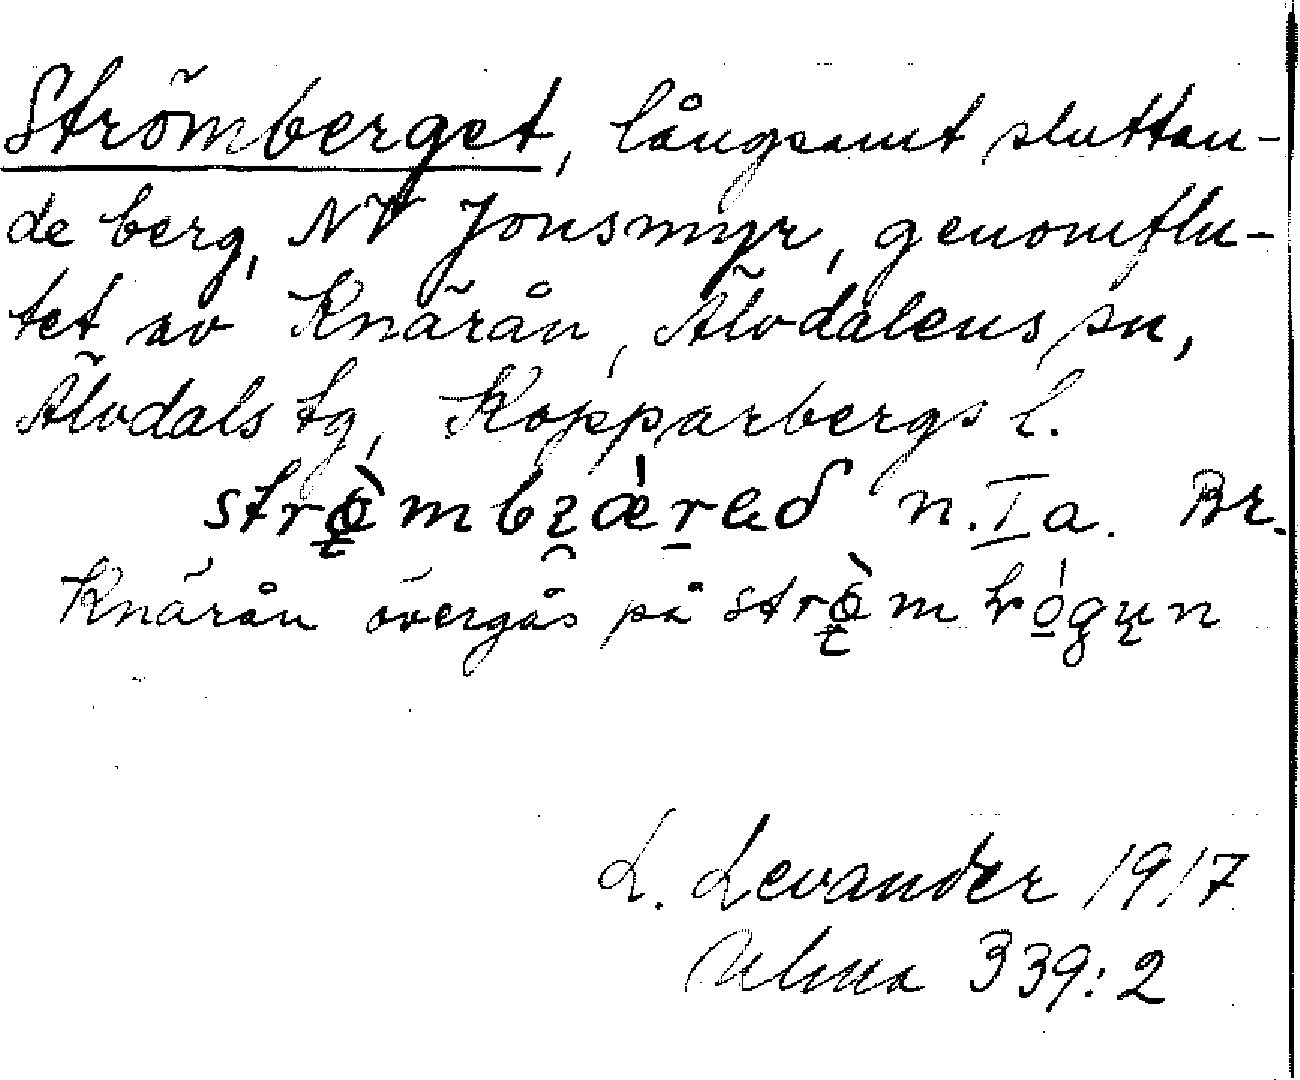 Strömberget, långsamt sluttan-
de berg, NV Jonsmyr, genomflu-
tet av Knärån, Älvdalens sn,
Älvdals tg, Kopparbergs l.
n. I a. Br.
Knärån övergås på
L. Levander 1917
Ulma 339:2